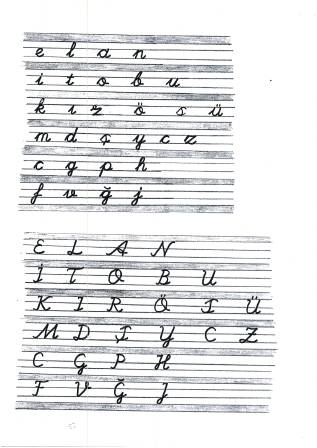 e l a n
i t o b u
k ı r ö s ü
m d ş y c z
c g p h
f v ğ j
E L A N
İ T O B U
K I R Ö S Ü
M D Ş Y C Z
C G P H
F V Ğ J